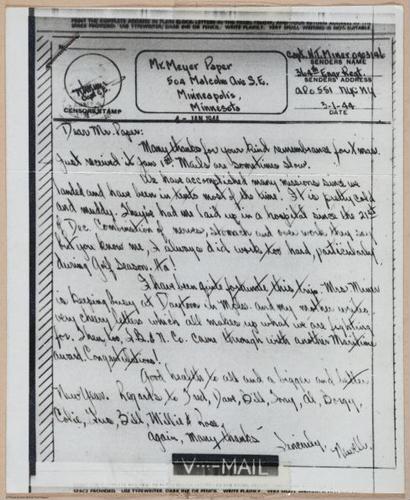 PRINT THE COMPLETE ADDRESS IN PLAIN BLOCK LETTERS IN THE PANEL BELOW, AND YOUR RETURN ADDRESS IN THE SPACE
PROVIDED. USE TYPEWRITER, DARK INK OR PENCIL. WRITE PLAINLY. VERY SMALL WRITING IS NOT SUITABLE.
CENSOR'S STAMP
Mr. Meyer Paper
504 Malcolm Ave S.E.
Minneapolis,
Minnesota
Capt. N.T. Miner
SENDER'S NAME
364th Engr Regt.
SENDER'S ADDRESS
APO 551 NYC NY
3-1-44
DATE
4 - JAN 1944
Dear Mr. Paper:
Many thanks for your kind remembrance for Xmas.
Just received it Jan 1st. Mails are sometimes slow.
We have accomplished many missions since we
landed and have been in tents most of the time. It is pretty cold
and muddy. They've had me laid up in a hospital since the 21st
of Dec. Combination of nerves, stomach and over work, they say
but you know me, I always did work too hard, particularly
during Golf season. Ha!
I have been quite fortunate this trip. Mrs Miner
is keeping busy at Dayton in and my mother writes
very cheery letters which all makes up what we are fighting
for. I see, too, I.B. & N. Co. came through with another Maritime
award. Congratulations!
Good health to all and a bigger and better
New Year. Regards to Fred, Dave, Bill, Tony, Al,
Gus, Bill, Willie & Rose.
Again, many thanks
Sincerely,
V-MAIL
SPACE PROVIDED. USE TYPEWRITER, DARK INK OR PENCIL. WRITE PLAINLY. VERY SMALL WRITING IS NOT SUITABLE.